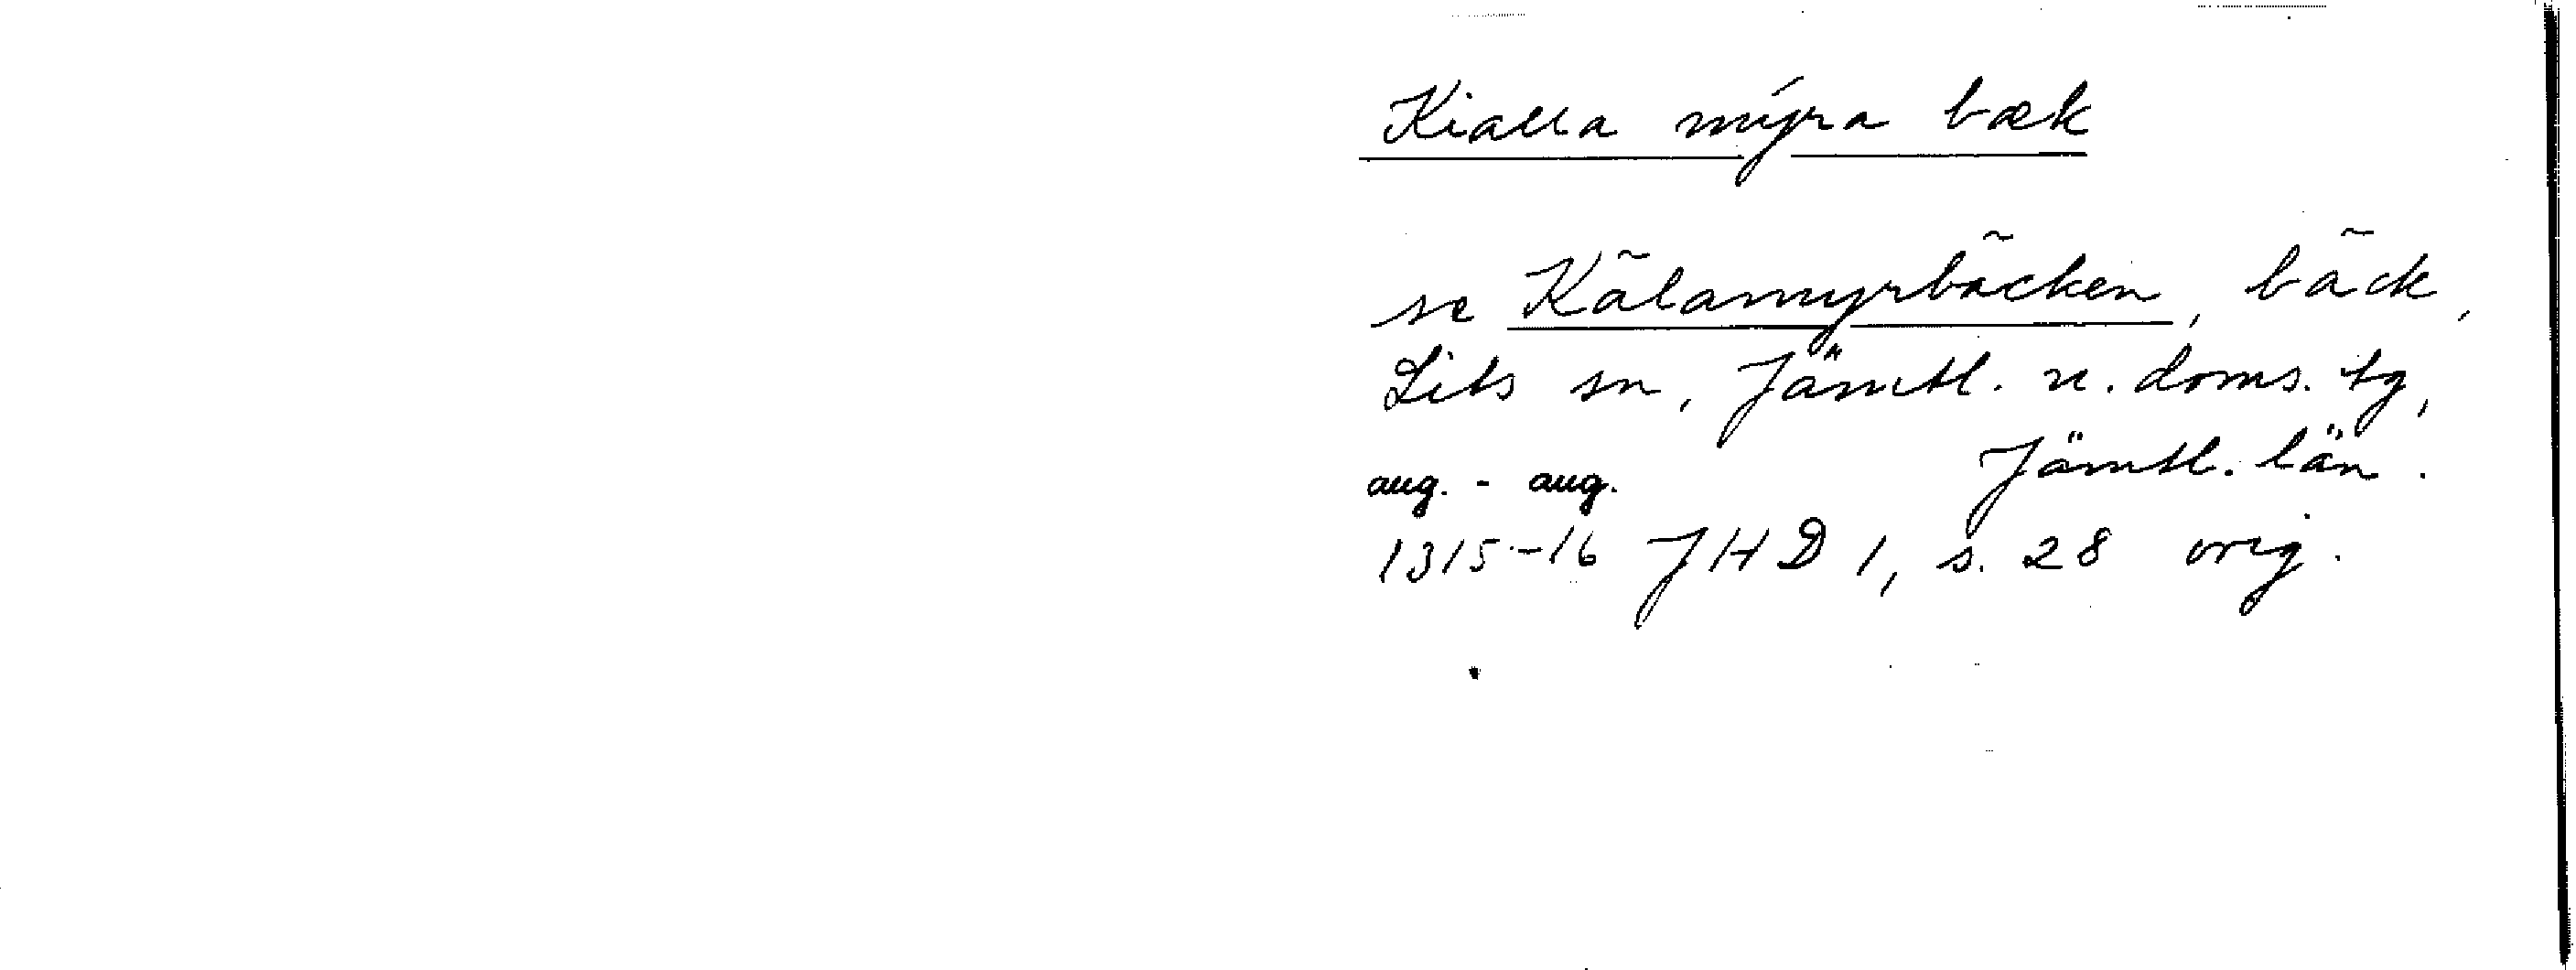 Kialla mýra bæk
se Kälamyrbäcken, bäck,
Lits sn, Jämtl. n. doms. tg,
Jämtl. län.
aug. - aug.
1315-16 JHD 1, s. 28 orig.